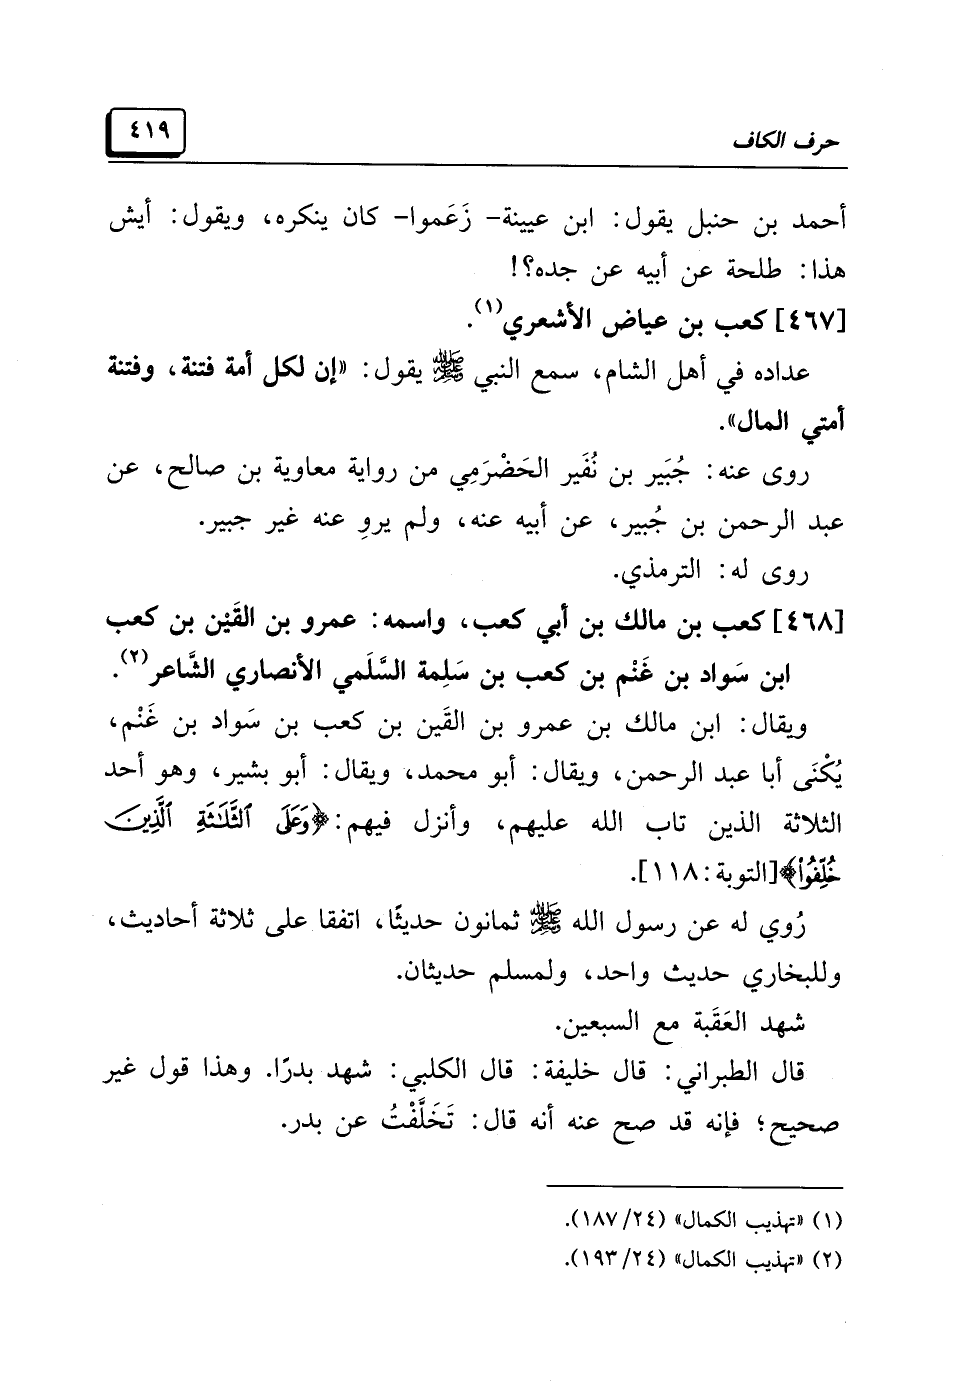 حرف الكاف
٤١٩
أحمد بن حنبل يقول: ابن عيينة- زَعَموا- كان ينكره، ويقول: أيش
هذا: طلحة عن أبيه عن جده؟!
[٤٦٧] كعب بن عياض الأشعري(١).
عداده في أهل الشام، سمع النبي ﷺ يقول: «إن لكل أمة فتنة، وفتنة
أمتي المال».
روى عنه: جُبَير بن نُفَير الحَضْرَمِي من رواية معاوية بن صالح، عن
عبد الرحمن بن جُبير، عن أبيه عنه، ولم يروِ عنه غير جبير.
روى له: الترمذي.
[٤٦٨] كعب بن مالك بن أبي كعب، واسمه: عمرو بن القَيْن بن كعب
ابن سَواد بن غَنْم بن كعب بن سَلِمة السَّلَمي الأنصاري الشَّاعر(٢).
ويقال: ابن مالك بن عمرو بن القَين بن كعب بن سَواد بن غَنْم،
يُكْنَى أبا عبد الرحمن، ويقال: أبو محمد، ويقال: أبو بشير، وهو أحد
الثلاثة الذين تاب الله عليهم، وأنزل فيهم: ﴿وَعَلَى ٱلثَّلَٰثَةِ ٱلَّذِينَ
خُلِّفُوا۟﴾[التوبة:١١٨].
رُوي له عن رسول الله ﷺ ثمانون حديثًا، اتفقا على ثلاثة أحاديث،
وللبخاري حديث واحد، ولمسلم حديثان.
شهد العَقَبة مع السبعين.
قال الطبراني: قال خليفة: قال الكلبي: شهد بدرًا. وهذا قول غير
صحيح؛ فإنه قد صح عنه أنه قال: تَخَلَّفْتُ عن بدر.
(١) «تهذيب الكمال» (٢٤/ ١٨٧).
(٢) «تهذيب الكمال» (٢٤/ ١٩٣).